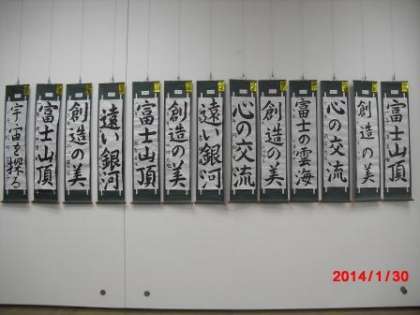 富士山頂
創造の美
心の交流
富士の雲海
創造の美
心の交流
遠い銀河
創造の美
富士山頂
遠い銀河
創造の美
富士山頂
宇宙を探る
2014/1/30